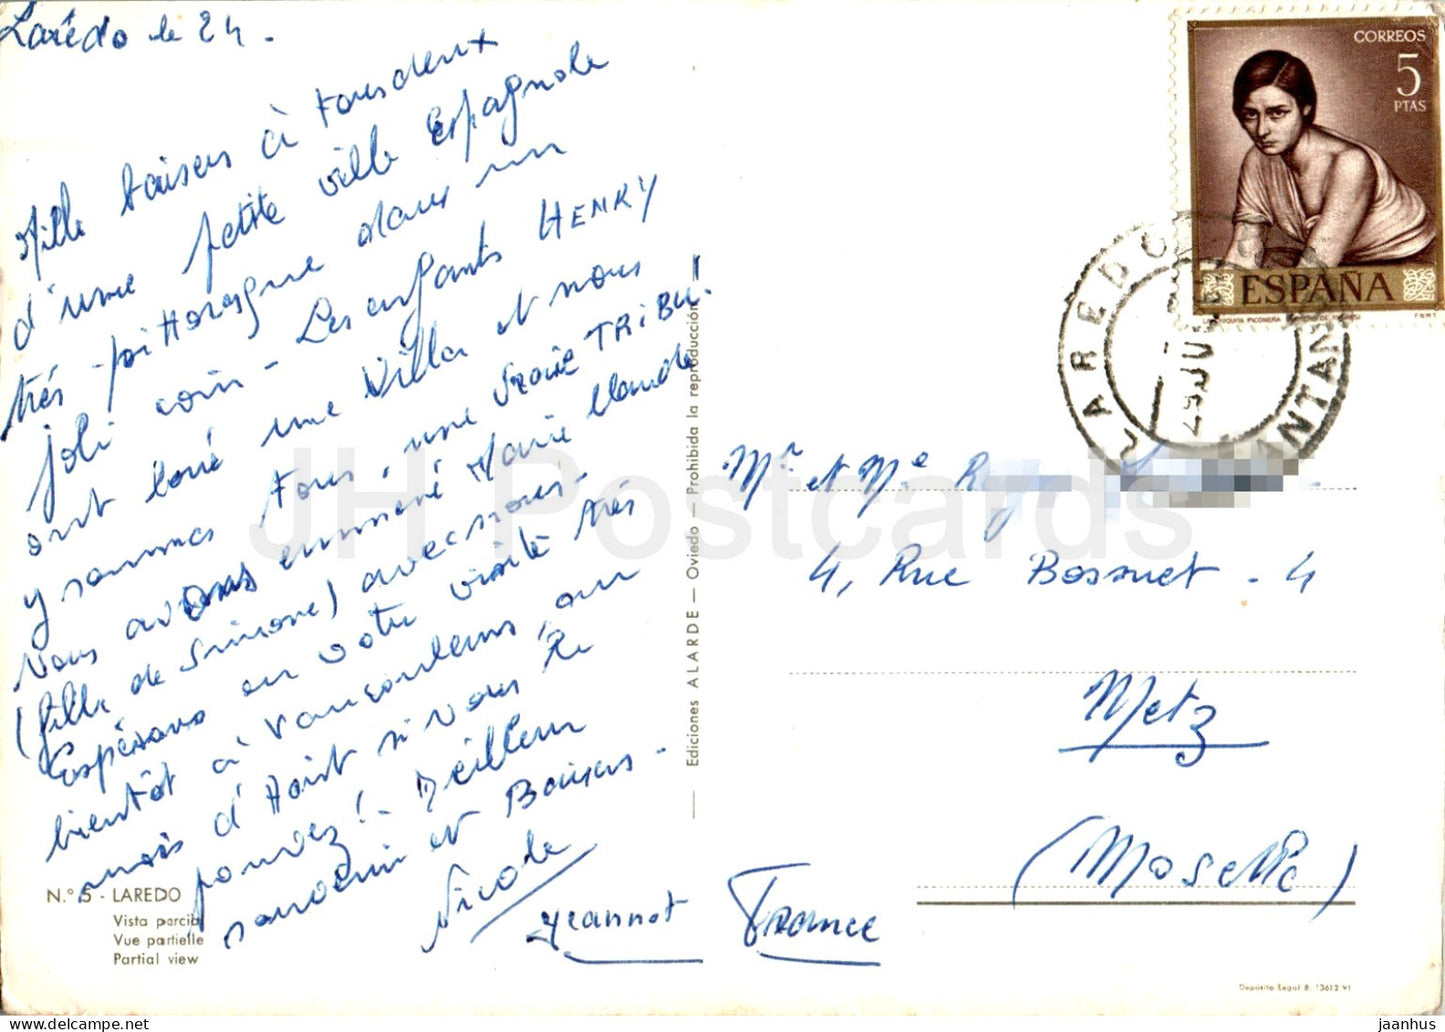 Larédo le 24.
Mille baisers à tous deux
d'une petite ville Espagnole
très pittoresque dans un
joli coin - Les enfants HENRY
ont loué une villa et nous
y sommes tous, une vraie TRIBU!
Nous avons emmené Marie Claude
(fille de Simone) avec nous -
Espérons en votre visite très
bientôt à Vaucouleurs, au
mois d'Août si vous le
pouvez! - Meilleur
souvenir et Baisers -
Nicole
Jeannot
N.º 5 - LAREDO
Vista parcial
Vue partielle
Partial view
Ediciones ALARDE — Oviedo — Prohibida la reproducción
CORREOS
5
PTAS
ESPAÑA
F.N.M.T.
LAREDO
SANTAN
Mr et Me Roger
4, Rue Bossuet - 4
Metz
(Moselle)
France
Depósito Legal B. 13612-VI
JH Postcards
jaanhus.com